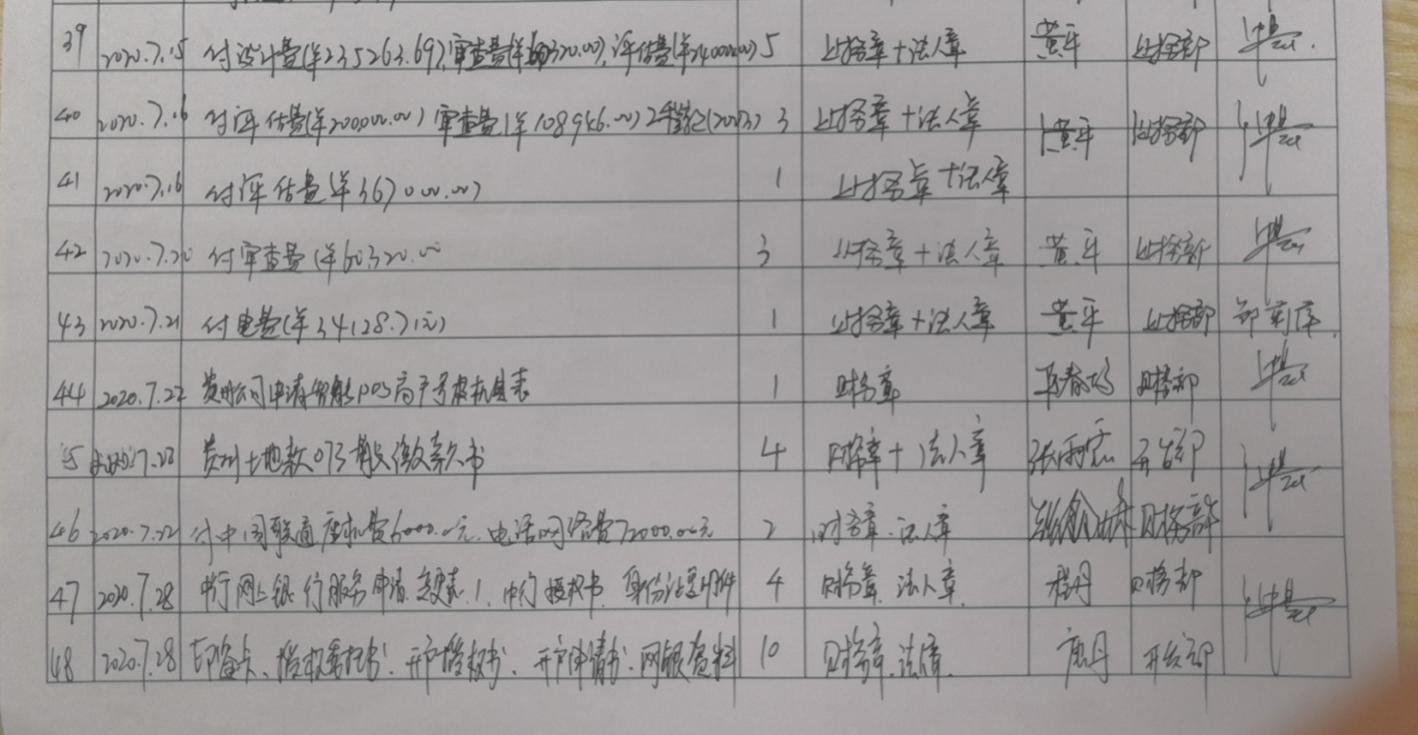 39 2020.7.15 付设计费(¥235263.69),审查费(¥60320.00),评估费(¥24000.00) 5 财务章+法人章 黄平 财务部
40 2020.7.16 付评估费(¥200000.00) 审查费(¥108956.00) 3 财务章+法人章 黄平 财务部
41 2020.7.16 付评估费(¥367000.00) 1 财务章+法人章
42 2020.7.20 付审查费(¥60320.00 3 财务章+法人章 黄平 财务部
43 2020.7.21 付电费(¥34128.71元) 1 财务章+法人章 黄平 财务部
44 2020.7.22 公司申请 POS 1 财务章 财务部
2020.7.23 贵州土地款073 4 财务章+法人章 张雨
46 2020.7.22 付中国联通座机费6000.00元.电话网络费72000.00元 2 财务章.法人章
47 2020.7.28 中行网上银行服务申请变更表.1.中行授权书.身份证复印件 4 财务章.法人章. 财务部
48 2020.7.28 印鉴卡、授权委托书.开户授权书.开户申请书.网银资料 10 财务章.法人章. 唐丹 开发部